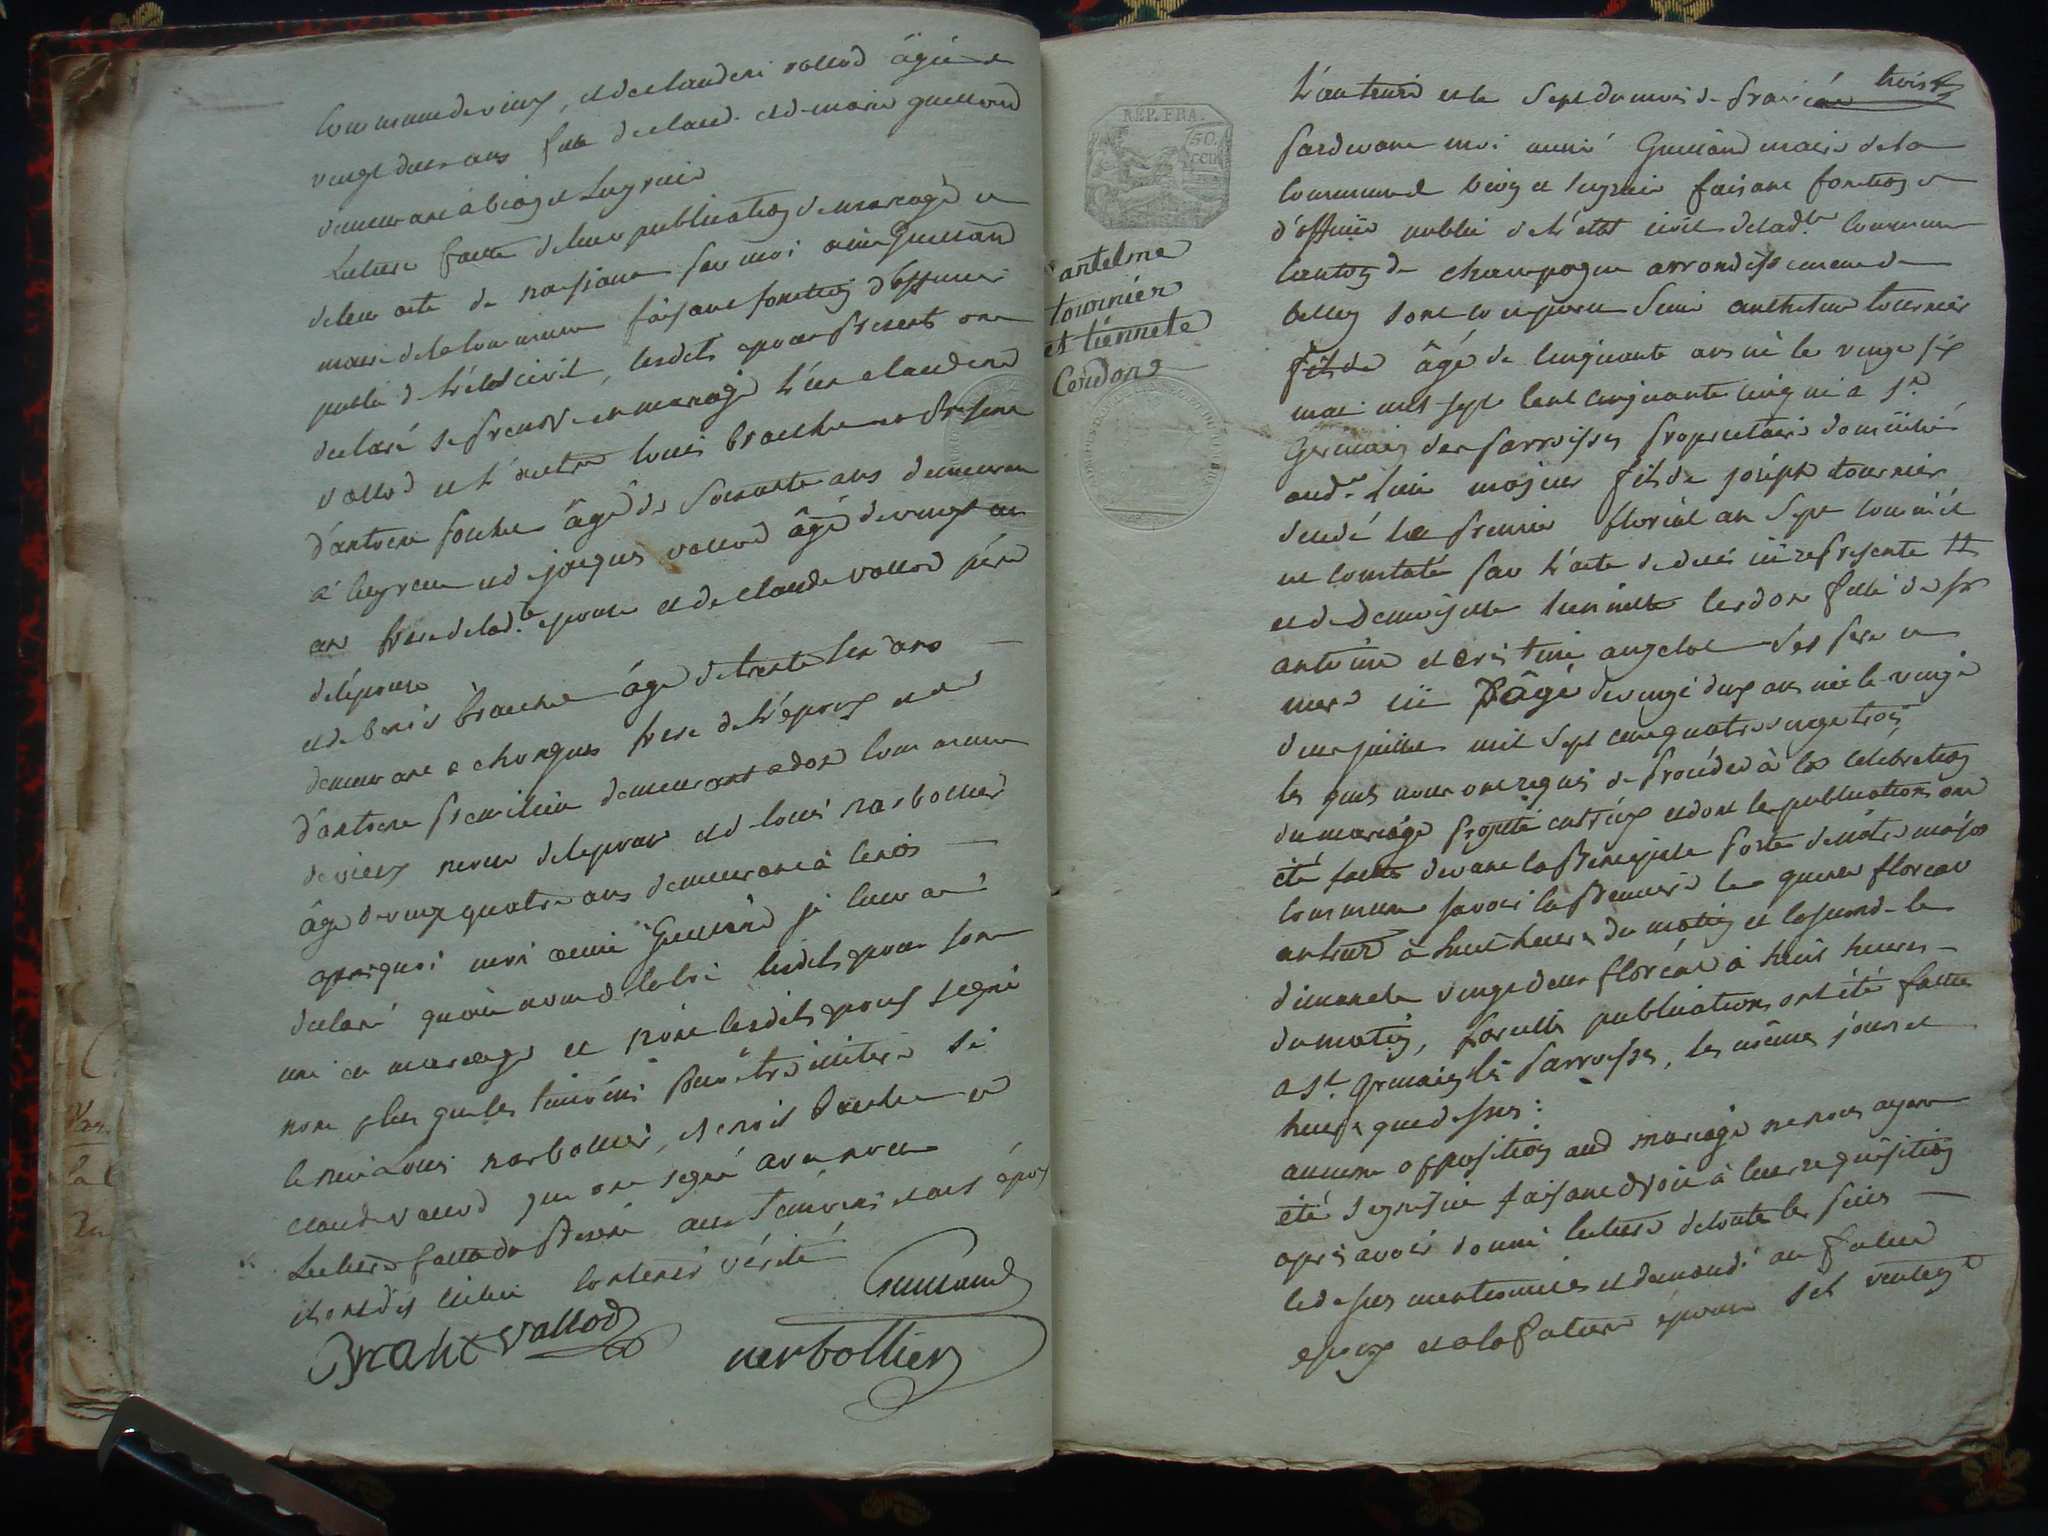 commune de vieux, et de claudeni vallod âgée de
vingt deux ans fille de claude et de marie guilland
demeurant à béon et Luyrieu
Lecture faitte de leur publication de mariage et
de leur acte de naissance par moi aimé Guilland
maire de la commune faisant fonction d'officier
public de l'état civil, lesdits époux présents ont
déclaré se prendre en mariage l'un claudeni
vallod et l'autre louis brachet en présence
d'antoine âgé de soixante ans demeurant
à luyrieu et de jacques vallod âgé de vingt un
an frere de lad.te epouse et de claude vallod pére
de l'épouse
et de benoit brachet âgé de trente un ans
demeurant a chongnes frere de l'époux et
d'antoine demeurant a don commune
de vieux neveu de lepoux et de louis narbollier
âgé de vingt quatre ans demeurant à
apres quoi moi aimé Guilland je leur ai
declaré qu'au nom de la loi lesdits epoux sont
uni en mariage et n'ont lesdits epoux segné
non plus que les temoins pour être illitere si
ce n'est Louis narbollier, benoit brachet et
claude vallod qui ont segné avec nous
Lecture faitte du present aux temoins et aux époux
et ont dit icelui contenir vérité
Guilland
Brachet vallod
narbollier
REP. FRA.
50
cen
antelme
tournier
et tiennete
Cerdon
trois
L'an treize et le sept du mois de prairéal
pardevant moi aimé Guilland maire de la
commune de béon et luyrieu faisant fonction
d'officier public de l'état civil de lad.te commune
canton de champagne arrondissement de
belley sont comparu sieur anthelme tournier
fils de âgé de cinquante ans né le vingt six
mai mil sept cent cinquante cinq né a S.t
Germain les parroisses propriétaire domicilié
aud.t lieu majeur fils de joseph tournier
decedé le premier floréal an sept
et constaté par l'acte de décés ici represente
et de Demoiselle tiennette cerdon fille de sr
antoine et cristine angelot ses pere et
mere ici âgé de vingt deux ans née le vingt
deux juillet mil sept cent quatre vingt trois
les quels nous ont requis de procéder à la célébration
du mariage projetté entr'eux et dont les publications ont
été faittes devant la principale porte de nôtre maison
commune savoir la premiere le quinze floréal
an treize à huit heures du matin et la seconde le
dimanche vingt deux floréal à huit heures
du matin, pareille publications ont été faittes
a S.t germain les parroisses, les mêmes jours et
heures que dessus :
aucune opposition aud mariage ne nous ayant
été segnifiée faisant droit à leur requisition
après avoir donné lecture de toute les pieces
ci dessus mentionnées et demandé au futur
epoux et a la future épouse s'ils veulent